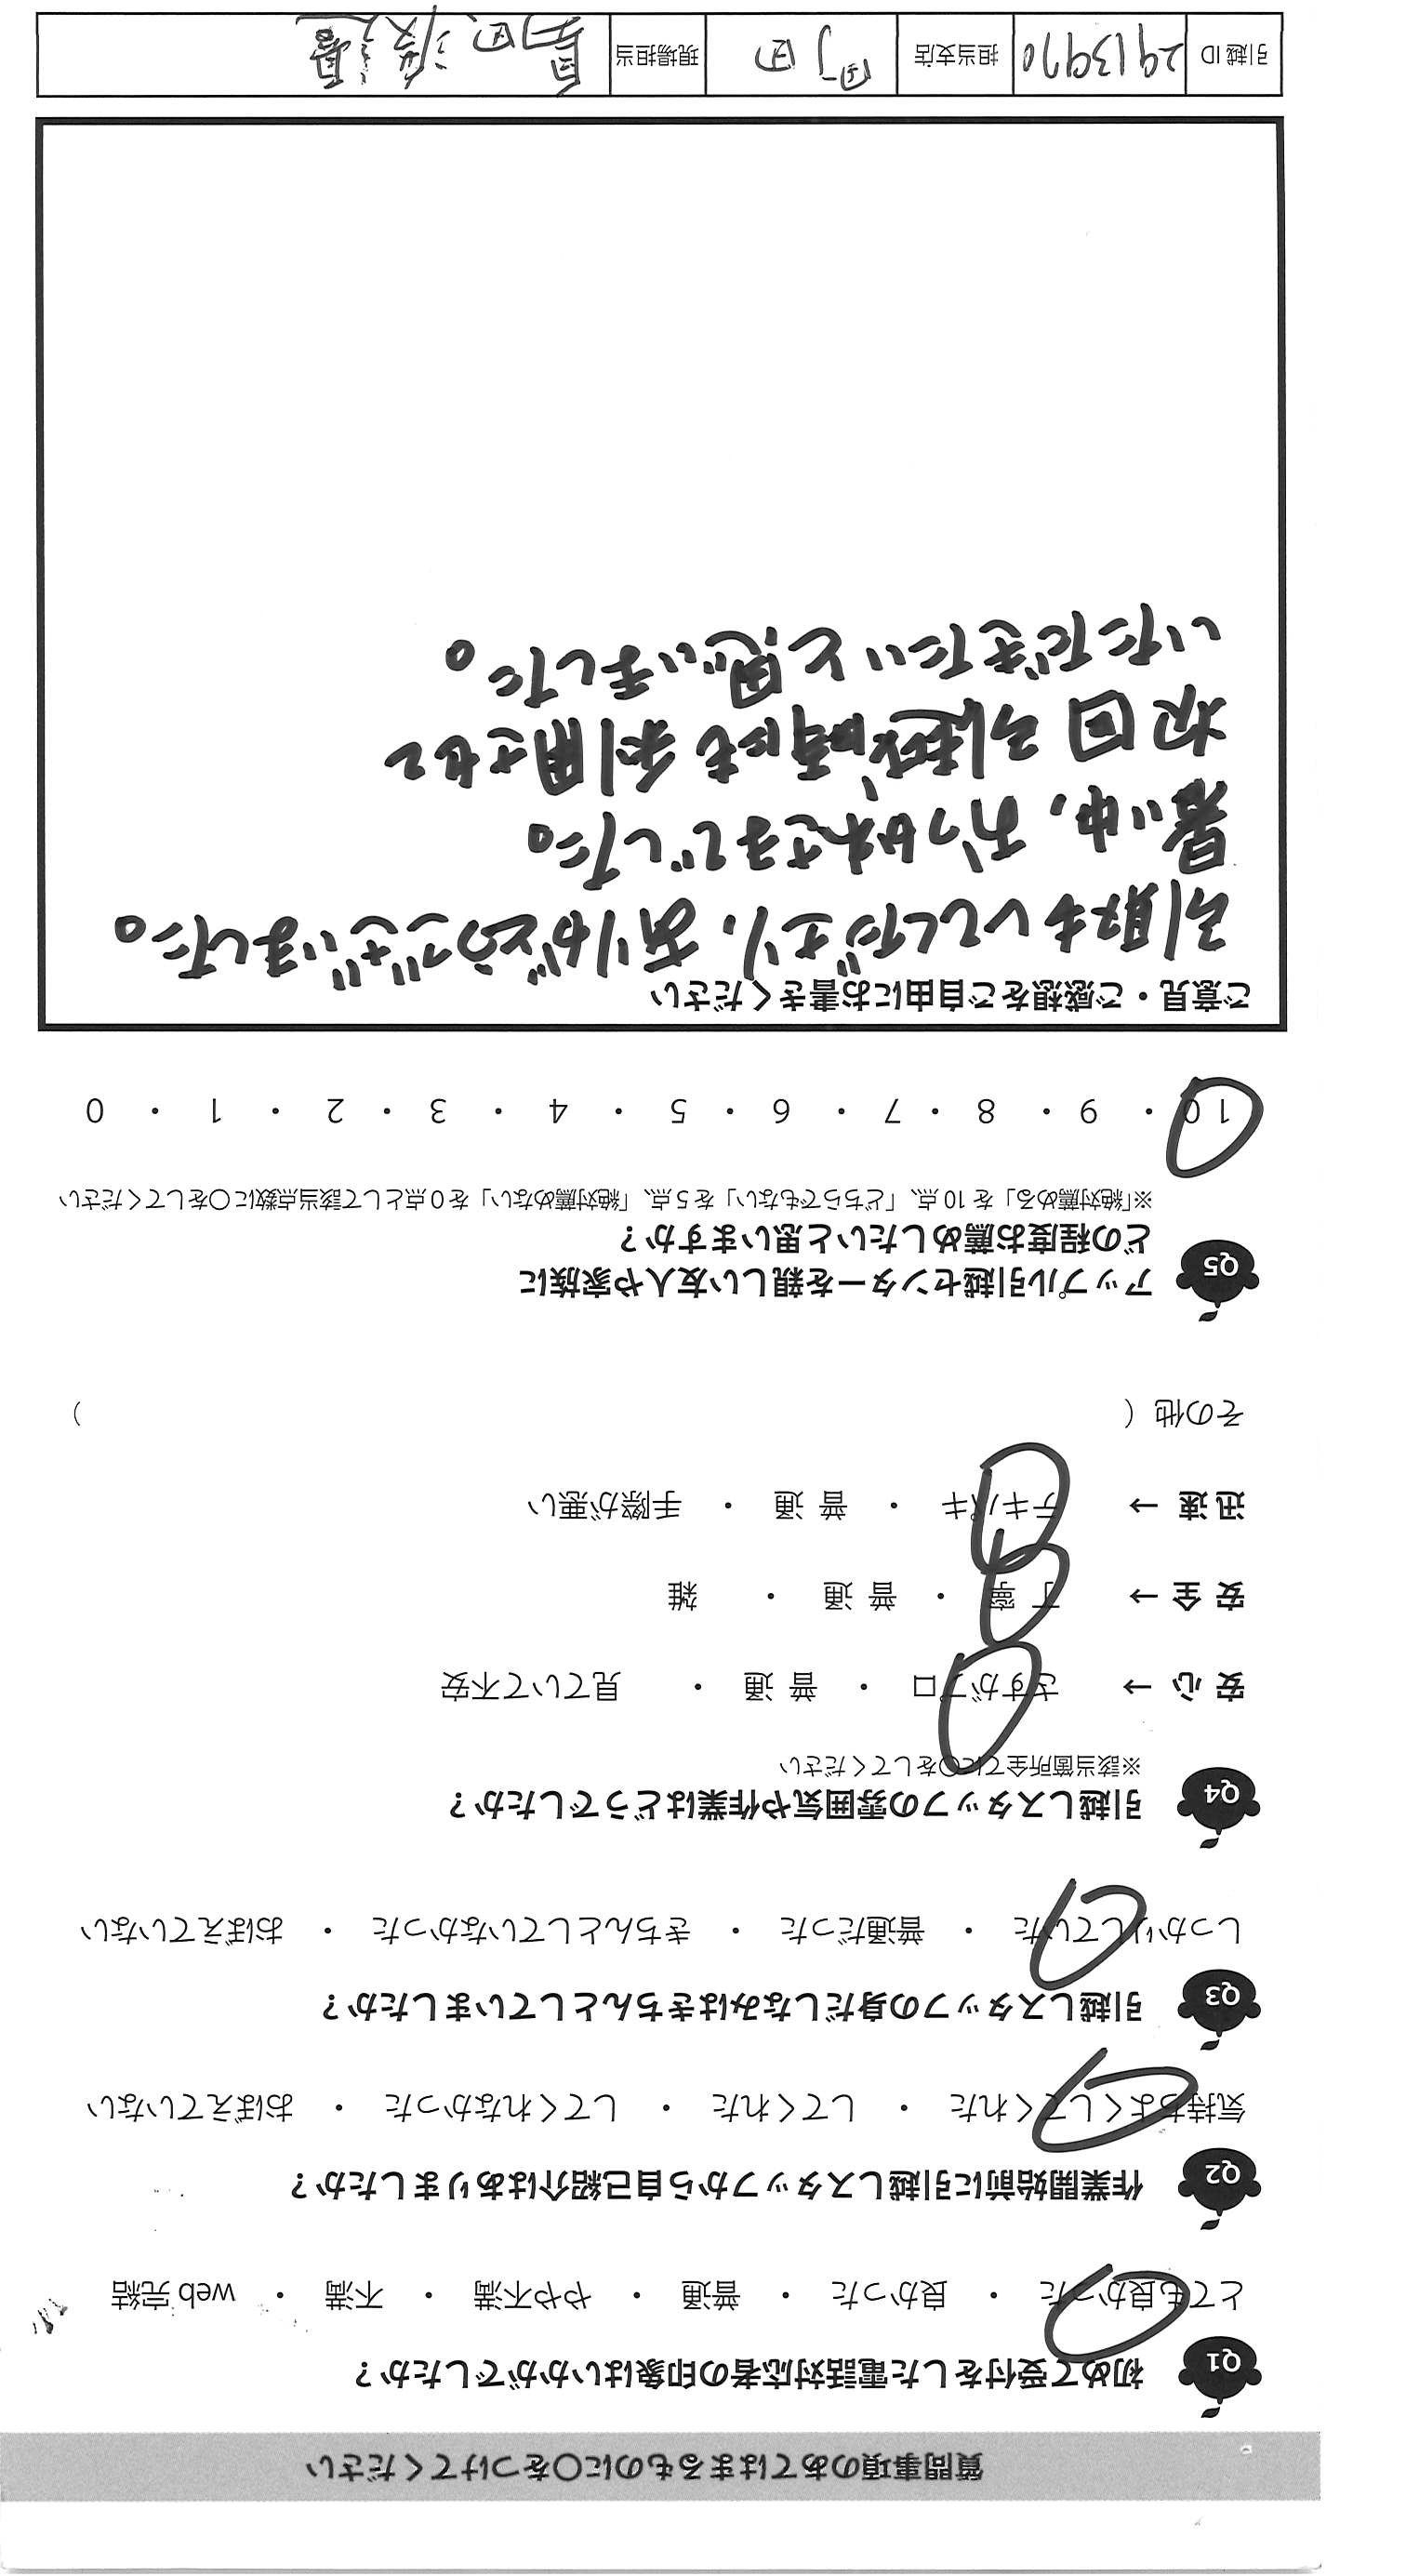 質問事項のあてはまるものに〇をつけてください
Q1 初めて受付をした電話対応者の印象はいかがでしたか？
とても良かった ・ 良かった ・ 普通 ・ やや不満 ・ 不満 ・ web 完結
Q2 作業開始前に引越しスタッフから自己紹介はありましたか？
気持ちよくしてくれた ・ してくれた ・ してくれなかった ・ おぼえていない
Q3 引越しスタッフの身だしなみはきちんとしていましたか？
しっかりしていた ・ 普通だった ・ きちんとしていなかった ・ おぼえていない
Q4 引越しスタッフの雰囲気や作業はどうでしたか？
※該当箇所全てに〇をしてください
安 心 → さすがプロ ・ 普 通 ・ 見ていて不安
安 全 → 丁 寧 ・ 普 通 ・ 雑
迅 速 → テキパキ ・ 普 通 ・ 手際が悪い
その他 （ ）
Q5 アップル引越センターを親しい友人や家族に
どの程度お薦めしたいと思いますか？
※「絶対薦める」を 10 点、「どちらでもない」を 5 点、「絶対薦めない」を 0 点として該当点数に〇をしてください
10 ・ 9 ・ 8 ・ 7 ・ 6 ・ 5 ・ 4 ・ 3 ・ 2 ・ 1 ・ 0
ご意見・ご感想をご自由にお書きください
引取もしてくださり、ありがとうございました。
暑い中、おつかれさまでした。
次回引越時にも利用させて
いただきたいと思いました。
引越 ID 2913970 担当支店 町田 現場担当 島田